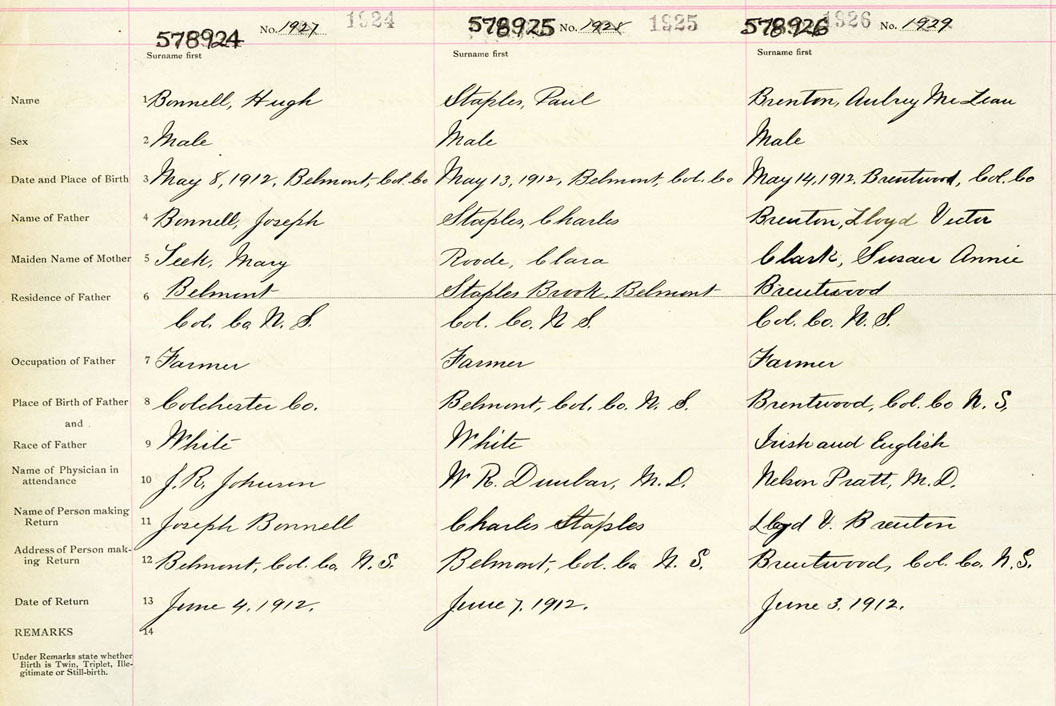 578924 No. 1927 1924 578925 No. 1928 1925 578926 1926 No. 1929
Surname first Surname first Surname first
Name 1 Bonnell, Hugh Staples, Paul Brenton, Aubrey McLean
Sex 2 Male Male Male
Date and Place of Birth 3 May 8, 1912, Belmont, Col. Co May 13, 1912, Belmont, Col. Co May 14, 1912, Brentwood, Col. Co
Name of Father 4 Bonnell, Joseph Staples, Charles Brenton, Lloyd Victor
Maiden Name of Mother 5 Mary Roode, Clara Clark, Susan Annie
Residence of Father 6 Belmont Staples Brook, Belmont Brentwood
Col. Co N. S. Col. Co. N S. Col. Co. N. S.
Occupation of Father 7 Farmer Farmer Farmer
Place of Birth of Father 8 Colchester Co. Belmont, Col. Co. N. S. Brentwood, Col. Co N. S.
and
Race of Father 9 White White Irish and English
Name of Physician in
attendance 10 J. R. Johnson W R. Dunbar, M. D. Nelson Pratt, M. D.
Name of Person making
Return 11 Joseph Bonnell Charles Staples Lloyd V. Brenton
Address of Person mak-
ing Return 12 Belmont, Col. Co. N. S. Belmont, Col. Co N. S. Brentwood, Col. Co. N. S.
Date of Return 13 June 4, 1912. June 7, 1912. June 3, 1912.
REMARKS 14
Under Remarks state whether
Birth is Twin, Triplet, Ille-
gitimate or Still-birth.